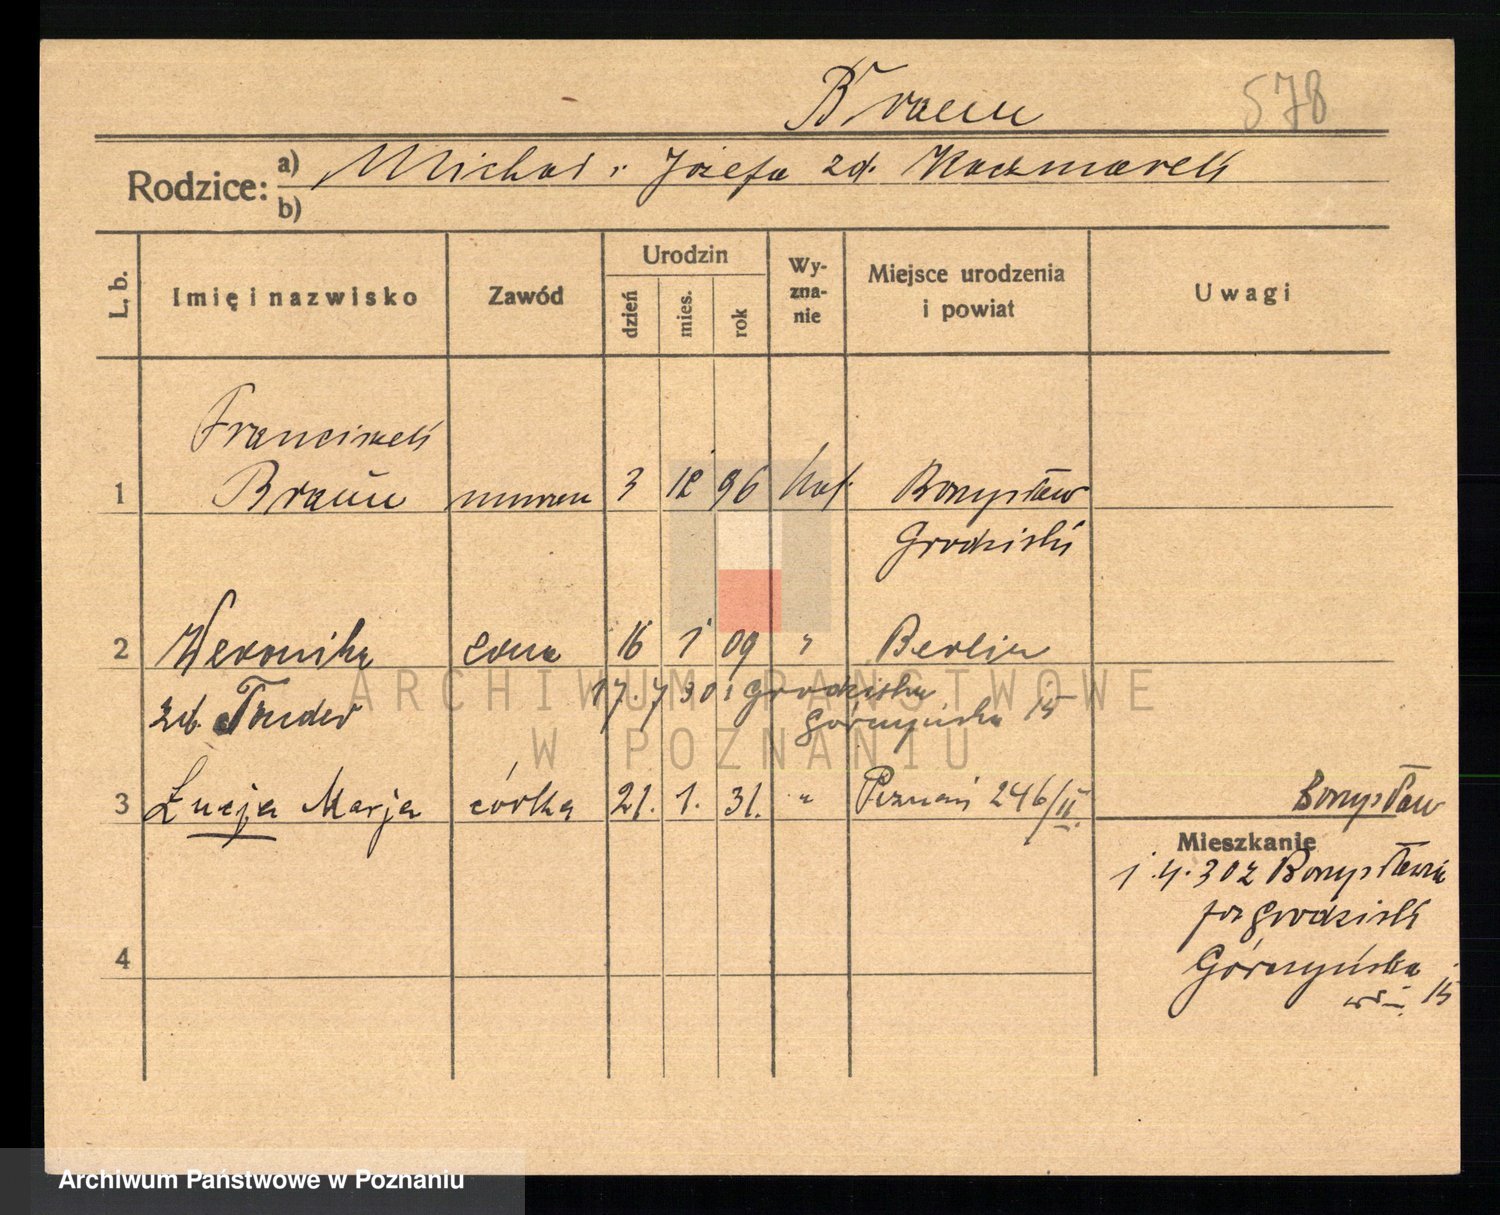 Braun 578
Rodzice: a) Michał i Józefa zd. Kaczmarek
b)
L. b. Imię i nazwisko Zawód Urodzin dzień mies. rok Wy-zna-nie Miejsce urodzenia i powiat Uwagi
Franciszek
1 Braun 3 12 96 kat. Bonysław
Grodzisk
2 Weronika żona 16 1 09 " Berlin
zd. 17.7 30 Grodziska
15
3 Łucja Marja córka 21. 1. 31. " Poznań 246/II. Bonysław
Mieszkanie
1.4.30 z
Grodzisk
15
4
ARCHIWUM PAŃSTWOWE
W POZNANIU
Archiwum Państwowe w Poznaniu